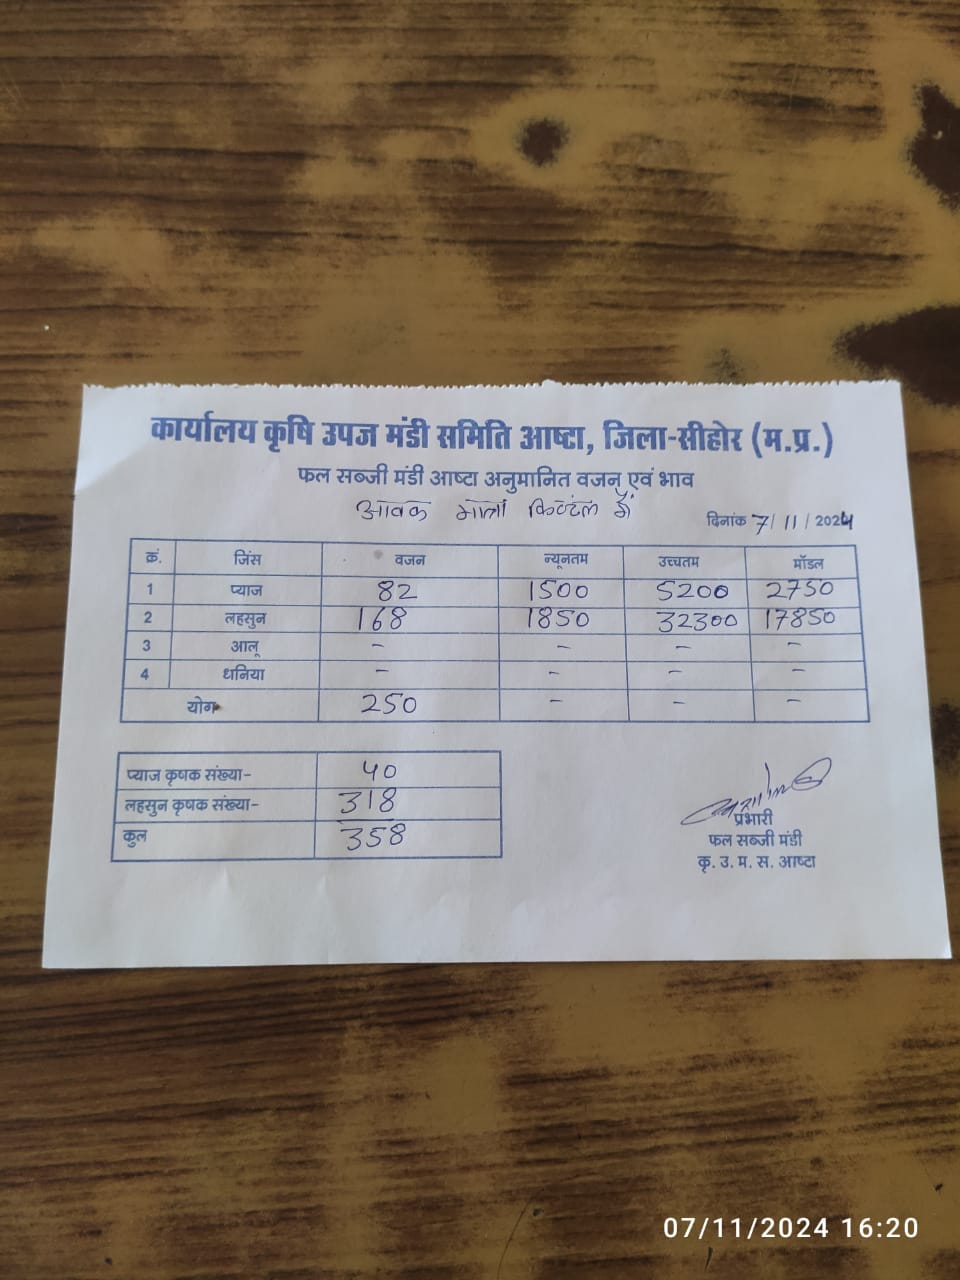 कार्यालय कृषि उपज मंडी समिति आष्टा, जिला-सीहोर (म.प्र.)
फल सब्जी मंडी आष्टा अनुमानित वजन एवं भाव
आवक मात्रा क्विंटल में
दिनांक 7/11/2024
क्रं. जिंस वजन न्यूनतम उच्चतम मॉडल
1 प्याज 82 1500 5200 2750
2 लहसुन 168 1850 32300 17850
3 आलू - - - -
4 धनिया - - - -
योग 250 - - -
प्याज कृषक संख्या- 40
लहसुन कृषक संख्या- 318
कुल 358
प्रभारी
फल सब्जी मंडी
कृ. उ. म. स. आष्टा
07/11/2024 16:20